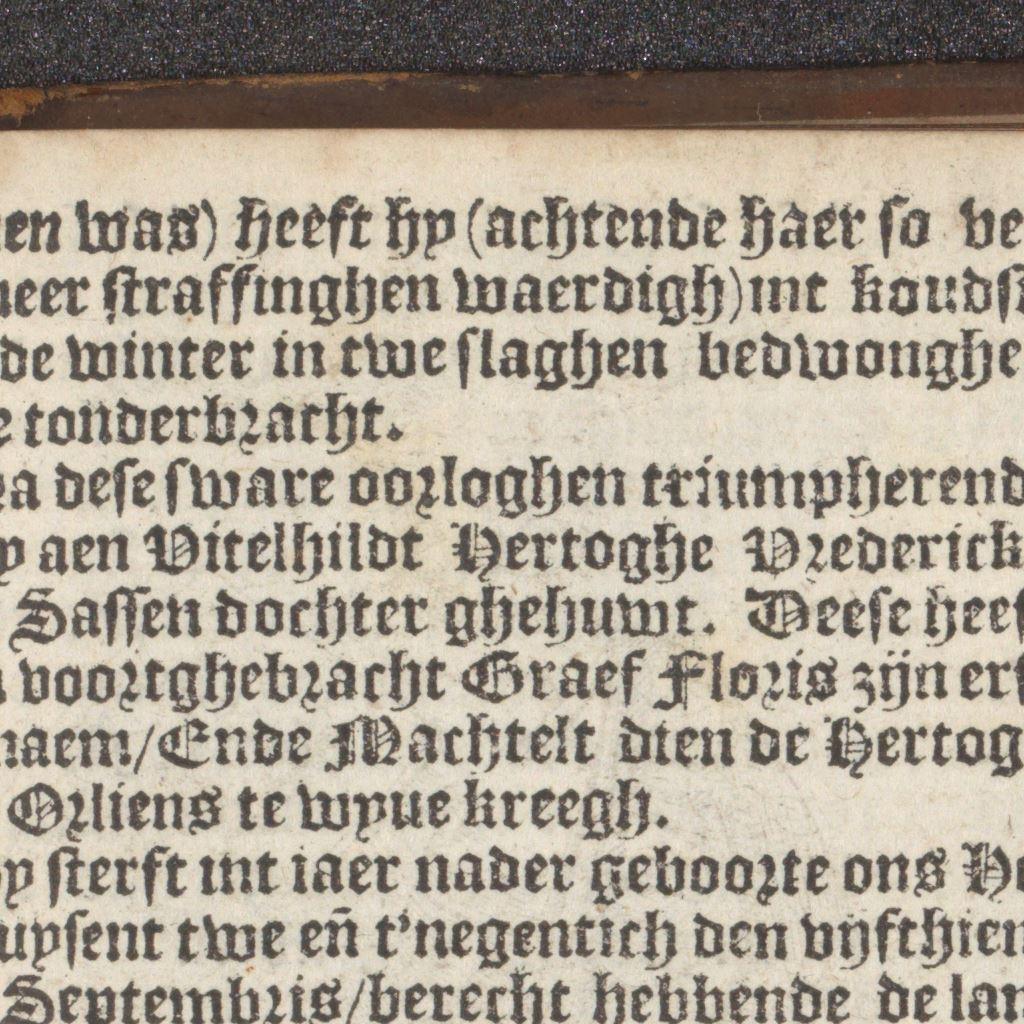 en was) heeft hy (achtende haer so ve
eer straffinghen waerdigh) int kouds
de winter in twe slaghen bedwonghe
e tonderbracht.
a dese sware oorloghen triumpherend
y aen Vitelhildt Hertoghe Vrederick
Sassen dochter ghehuwt. Deese heef
voortghebracht Graef Floris zijn erf
naem/Ende Machtelt dien de Hertog
Orliens te wyue kreegh.
y sterft int iaer nader geboorte ons He
uysent twe eñ t'negentich den vijfthien
Septembris/berecht hebbende de lan